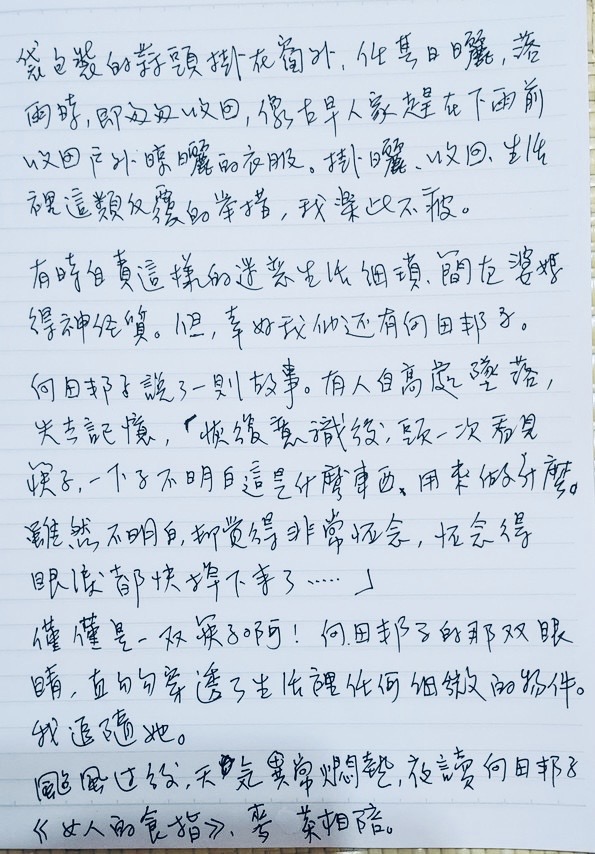 袋包裝的蒜頭掛在窗外，任其日曬，落
雨時，即匆匆收回，像古早人家趕在下雨前
收回戶外晾曬的衣服。掛曬、收回、生活
裡這類反覆的举措，我樂此不疲。
有時自責這樣的迷恋生活細瑣、簡直婆媽
得神经質。但，幸好我們还有向田邦子。
向田邦子說了一則故事。有人自高處墜落，
失去記憶，「恢復意識後，頭一次看見
筷子，一下子不明白這是什麼東西、用來做什麼。
雖然不明白，却觉得非常怀念，怀念得
眼淚都快掉下来了……」
僅僅是一双筷子啊！向田邦子的那双眼
睛，直勾勾穿透了生活裡任何細微的物件。
我追隨她。
颱風过後，天氣異常燜熱，夜讀向田邦子
《女人的食指》、 菜相陪。